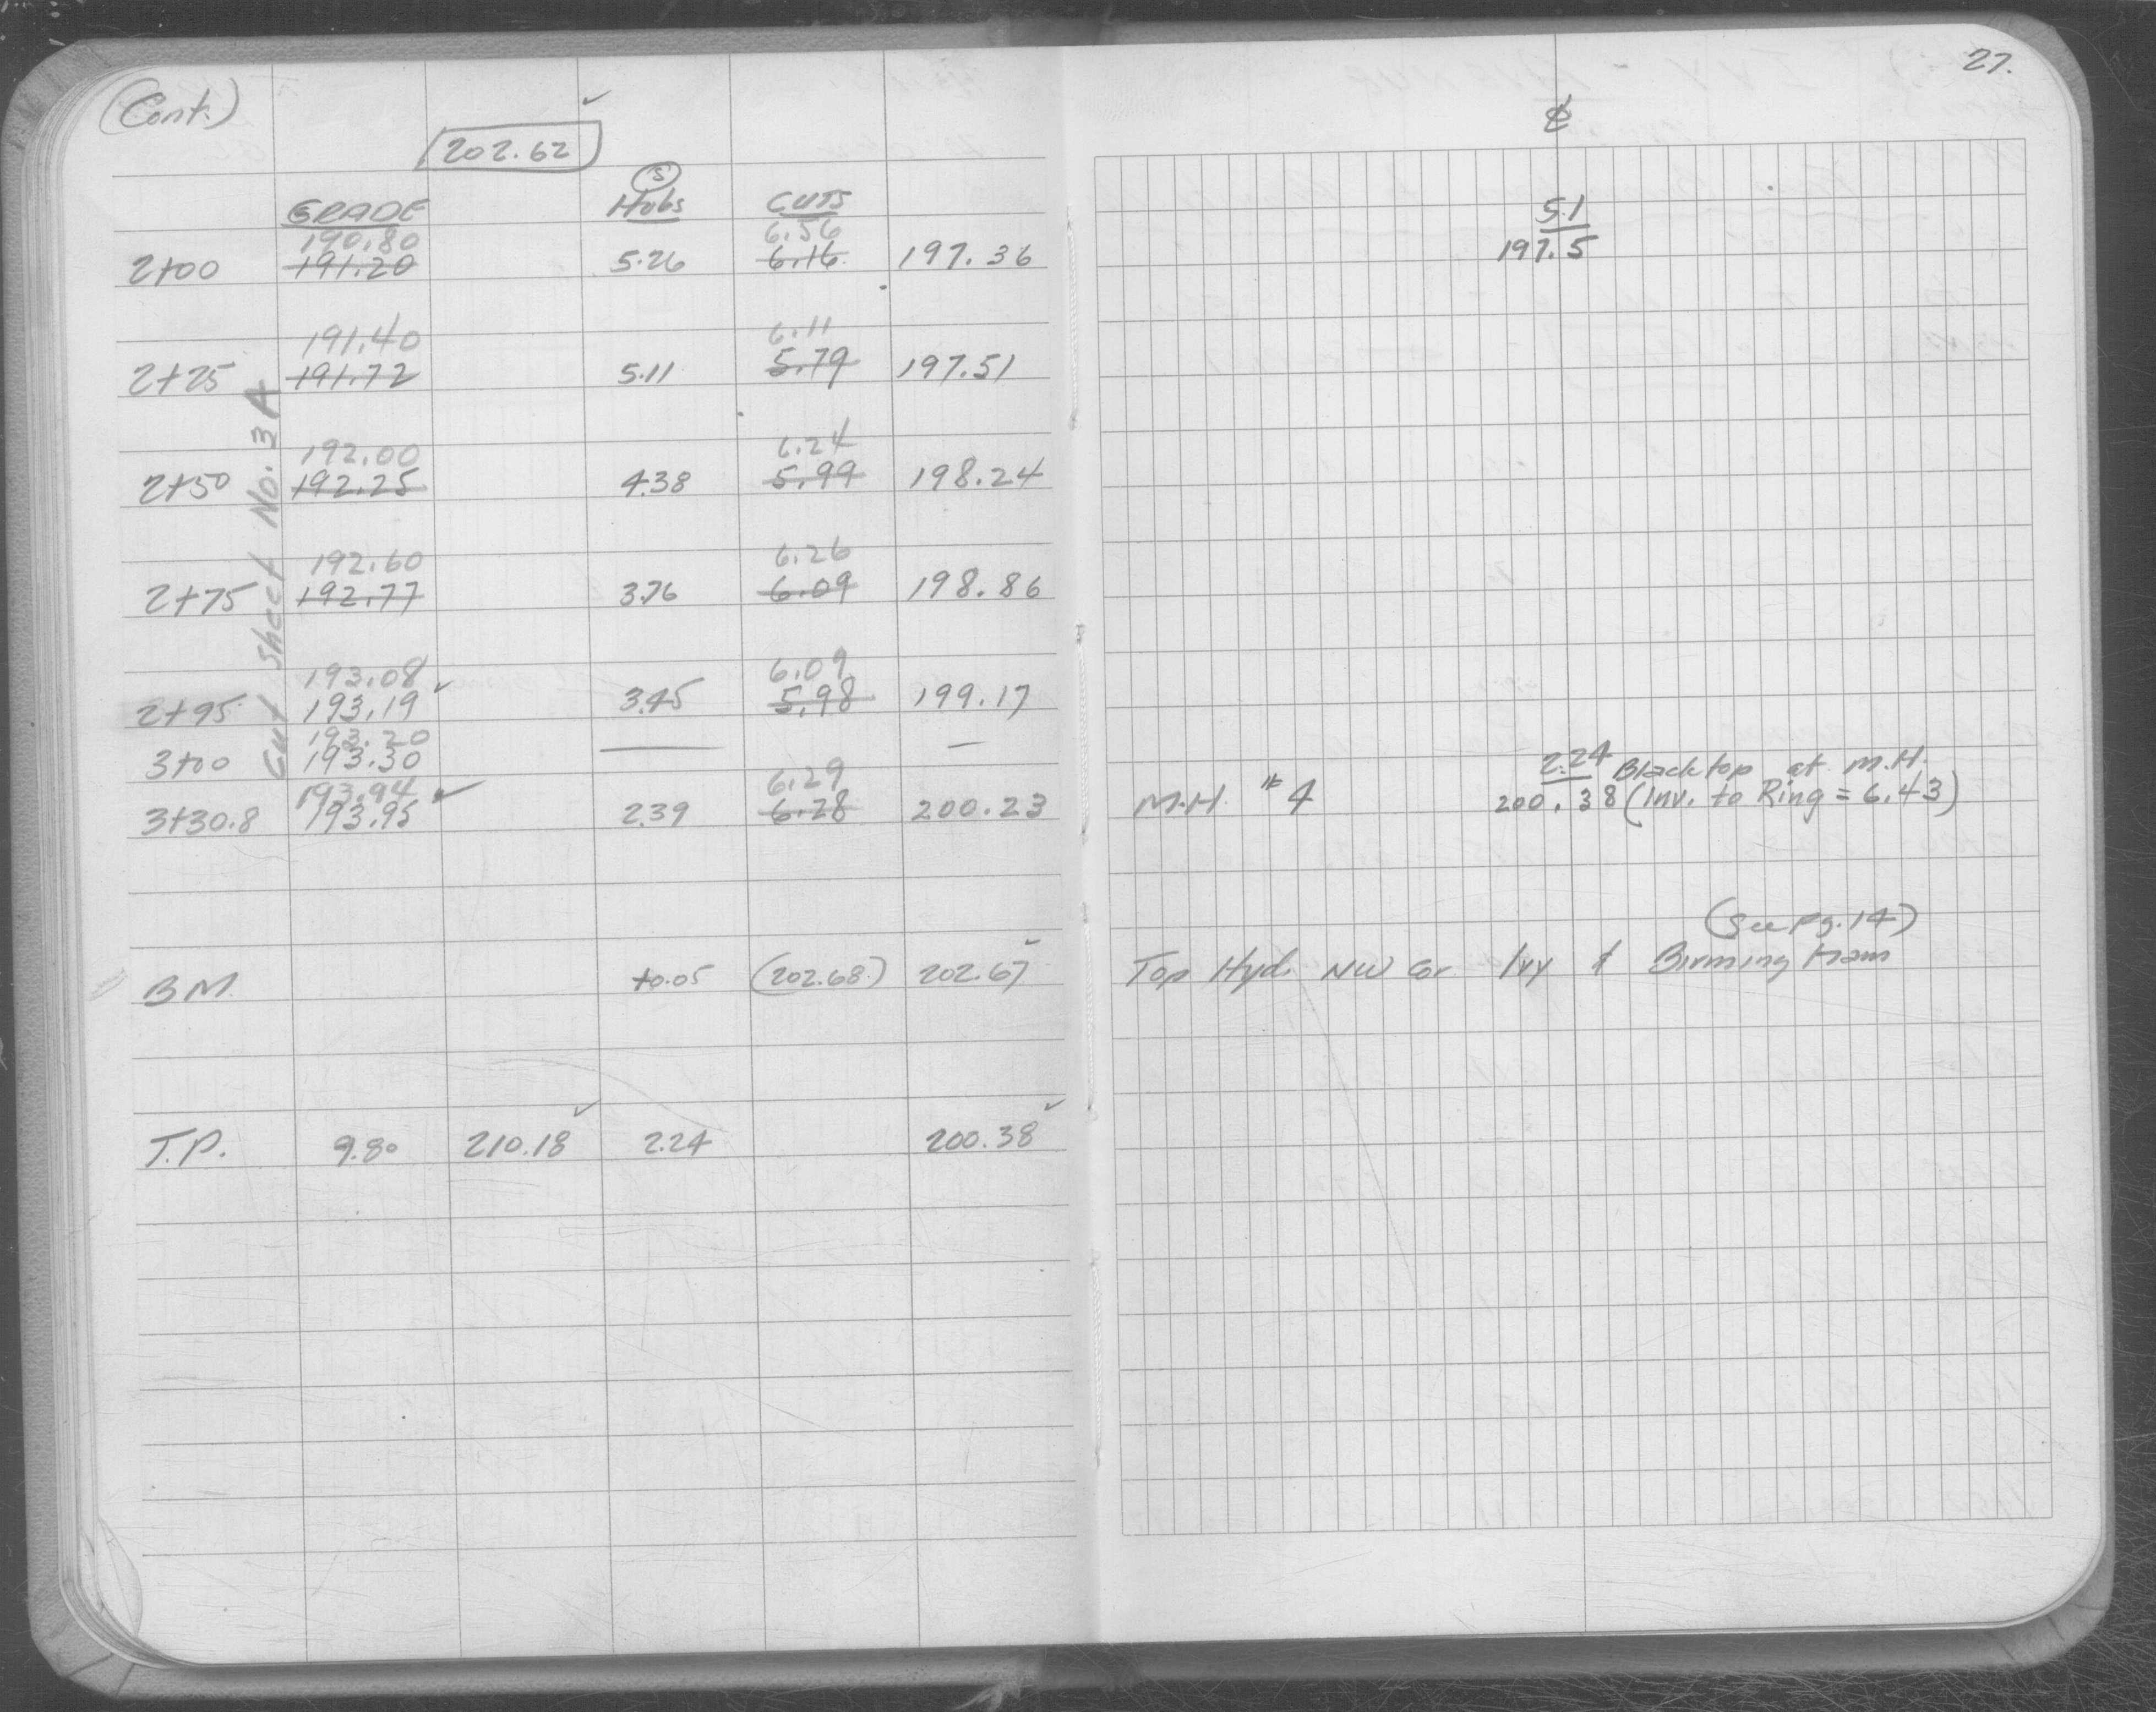 (Cont.)
202.62
GRADE Hubs (S) CUTS
190.80 6.56
2+00 191.20 5.26 6.16 197.36
191.40 6.11
2+25 191.72 5.11 5.79 197.51
192.00 6.24
2+50 192.25 4.38 5.99 198.24
192.60 6.26
2+75 192.77 3.76 6.09 198.86
193.08 6.09
2+95 193.19 ✓ 3.45 5.98 199.17
193.20
3+00 193.30 — —
193.94 6.29
3+30.8 193.95 ✓ 2.39 6.28 200.23
Cut Sheet No. 3A
BM. +0.05 (202.68) 202.67
T.P. 9.80 210.18 2.24 200.38
27.
℄
5.1
197.5
2.24 Blacktop at M.H.
M.H. # 4 200.38 (Inv. to Ring = 6.43)
(See Pg. 14)
Top Hyd. NW Cor Ivy & Birmingham